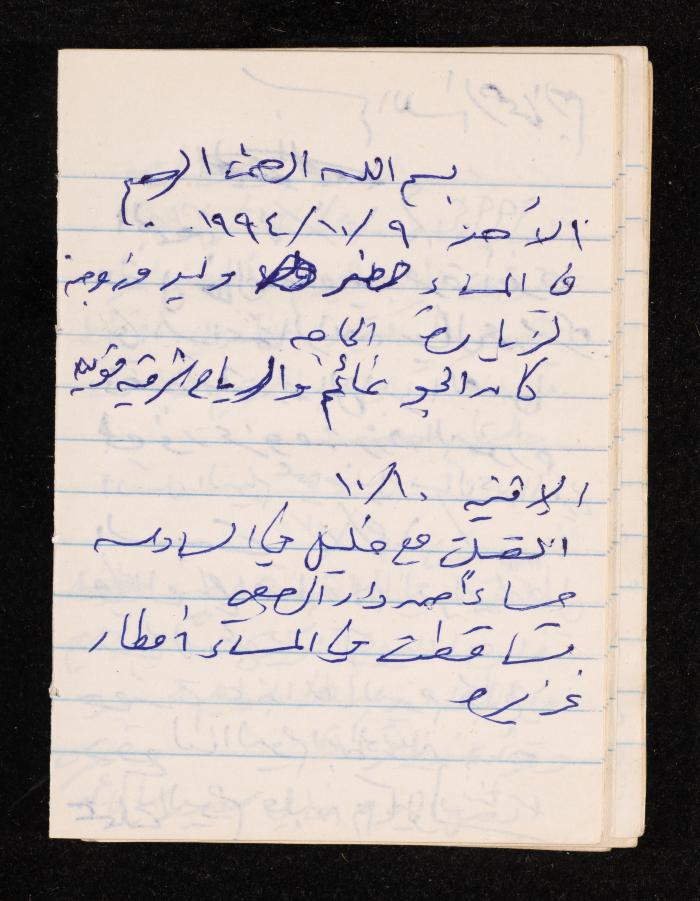 بسم الله الرحمن الرحيم
الأحد ٩/١٠/١٩٩٤
في المساء حضر وليد وزوجته
لزيارة الحاجه
كان الجو غائم والرياح شرقية قويه
الاثنين ١٠/١٠
اتصلت مع خليل في السادسه
مساءاً من دار
تساقطت في المساء أمطار
غزيره